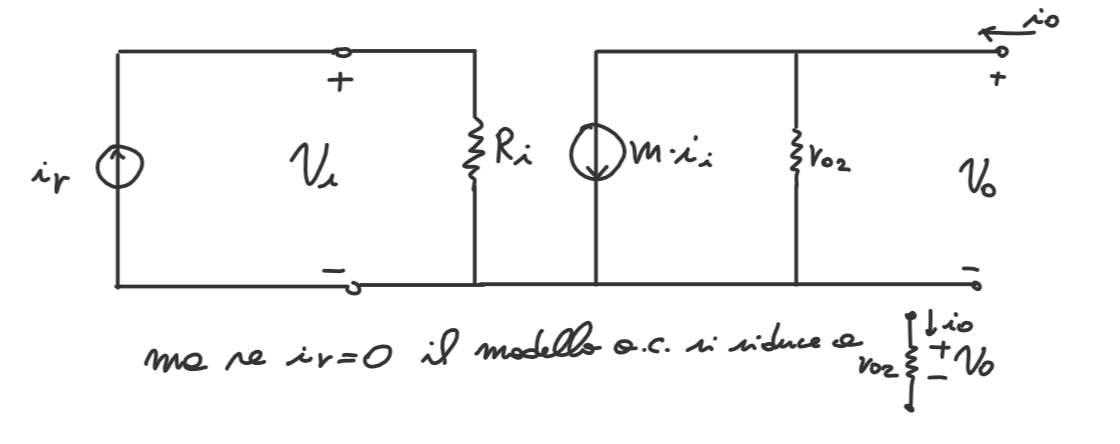 io
+ +
ir Vi Ri m·ii ro2 Vo
- -
ma se ir=0 il modello a.c. si riduce a ro2 io + - Vo